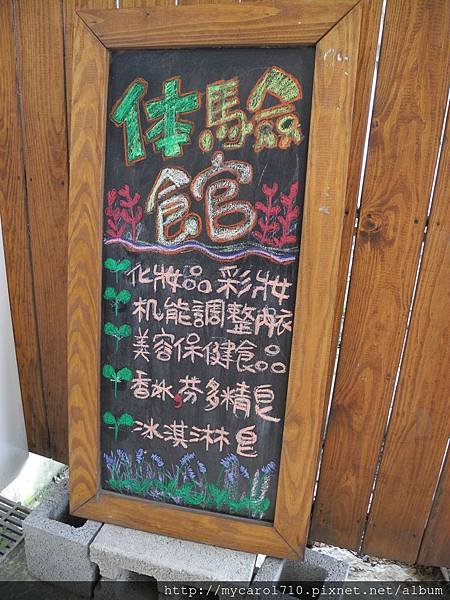 体驗
館
化妝品彩妝
机能調整內衣
美容保健食品
香水,芬多精皂
冰淇淋皂
http://mycarol710.pixnet.net/album